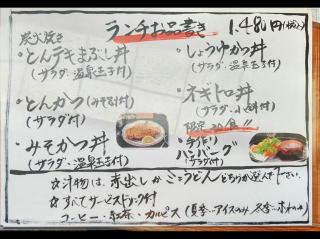 ランチお品書き 1,480円(税込)
炭火焼き
・とんテキまぶし丼
(サラダ・温泉玉子付)
・とんかつ(みそ別付)
(サラダ付)
・みそかつ丼
(サラダ・温泉玉子付)
・しょうゆかつ丼
(サラダ・温泉玉子付)
・ネギトロ丼
(サラダ・小鉢付)
限定 食!!
・手作り
ハンバーグ
(サラダ付)
☆汁物は、赤出しかミニうどんどちらか選んで下さい。
☆すべてサービスドリンク付
コーヒー・紅茶・カルピス(夏季…アイスのみ 冬季…ホットのみ)